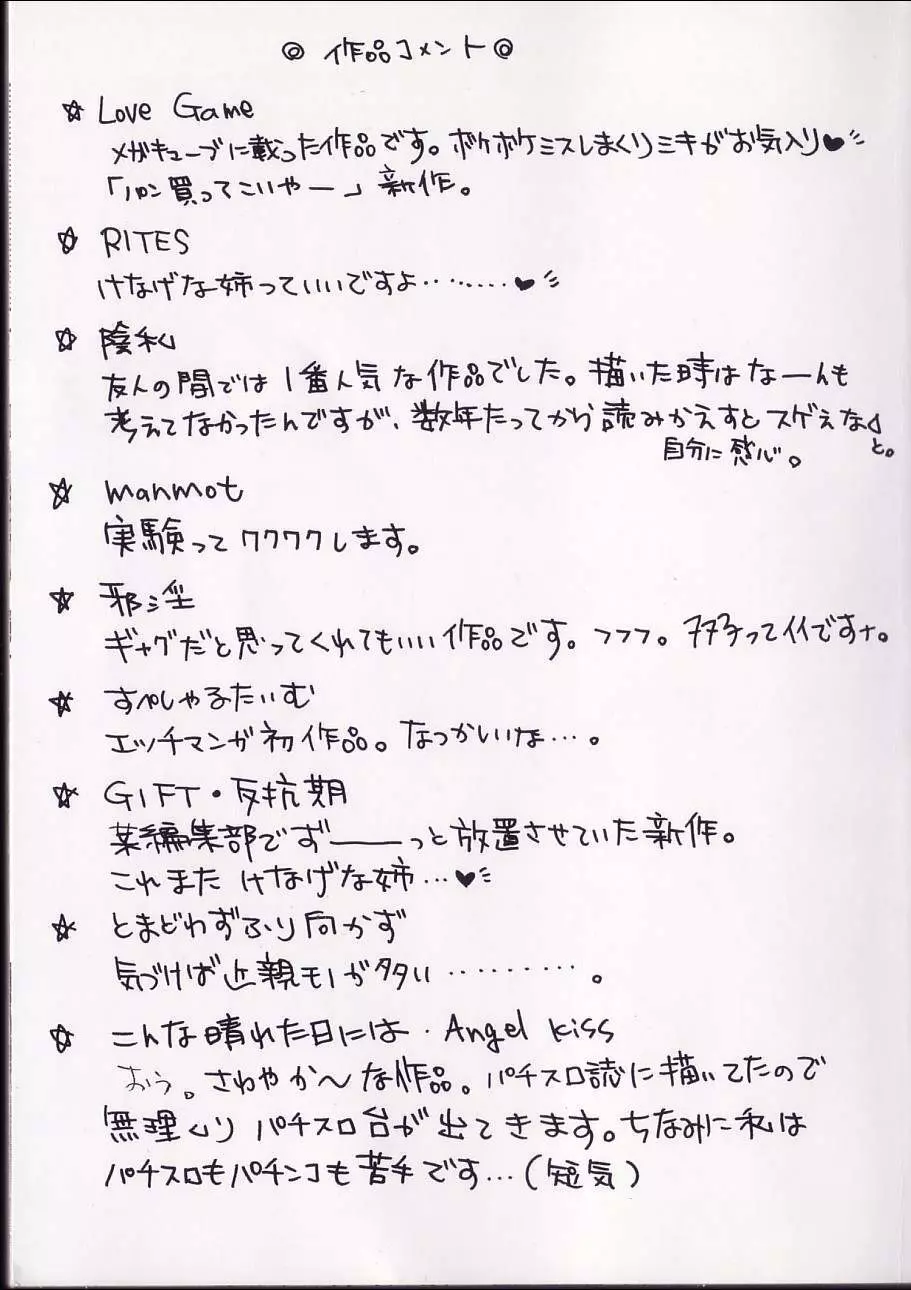 ◎ 作品コメント ◎
☆ Love Game
メガキューブに載った作品です。ボケボケミスしまくりミキがお気入り♥
「パン買ってこいやー」新作。
☆ RITES
けなげな姉っていいですよ………♥
☆ 陰私
友人の間では1番人気な作品でした。描いた時はなーんも
考えてなかったんですが、数年たってから読みかえすとスゲぇな」と。
自分に感心。
☆ manmot
実験ってワクワクします。
☆ 邪淫
ギャグだと思ってくれてもいい作品です。フフフ。ってイイですナ。
☆ すぺしゃるたいむ
エッチマンガ初作品。なつかいいな…。
☆ GIFT・反抗期
某編集部でずーーっと放置させていた新作。
これまた けなげな姉…♥
☆ とまどわずふり向かず
気づけば近親モノが多い………。
☆ こんな晴れた日には・Angel kiss
おう。さわやか〜な作品。パチスロ誌に描いてたので
無理くり パチスロ台が出てきます。ちなみに私は
パチスロもパチンコも苦手です…(短気)